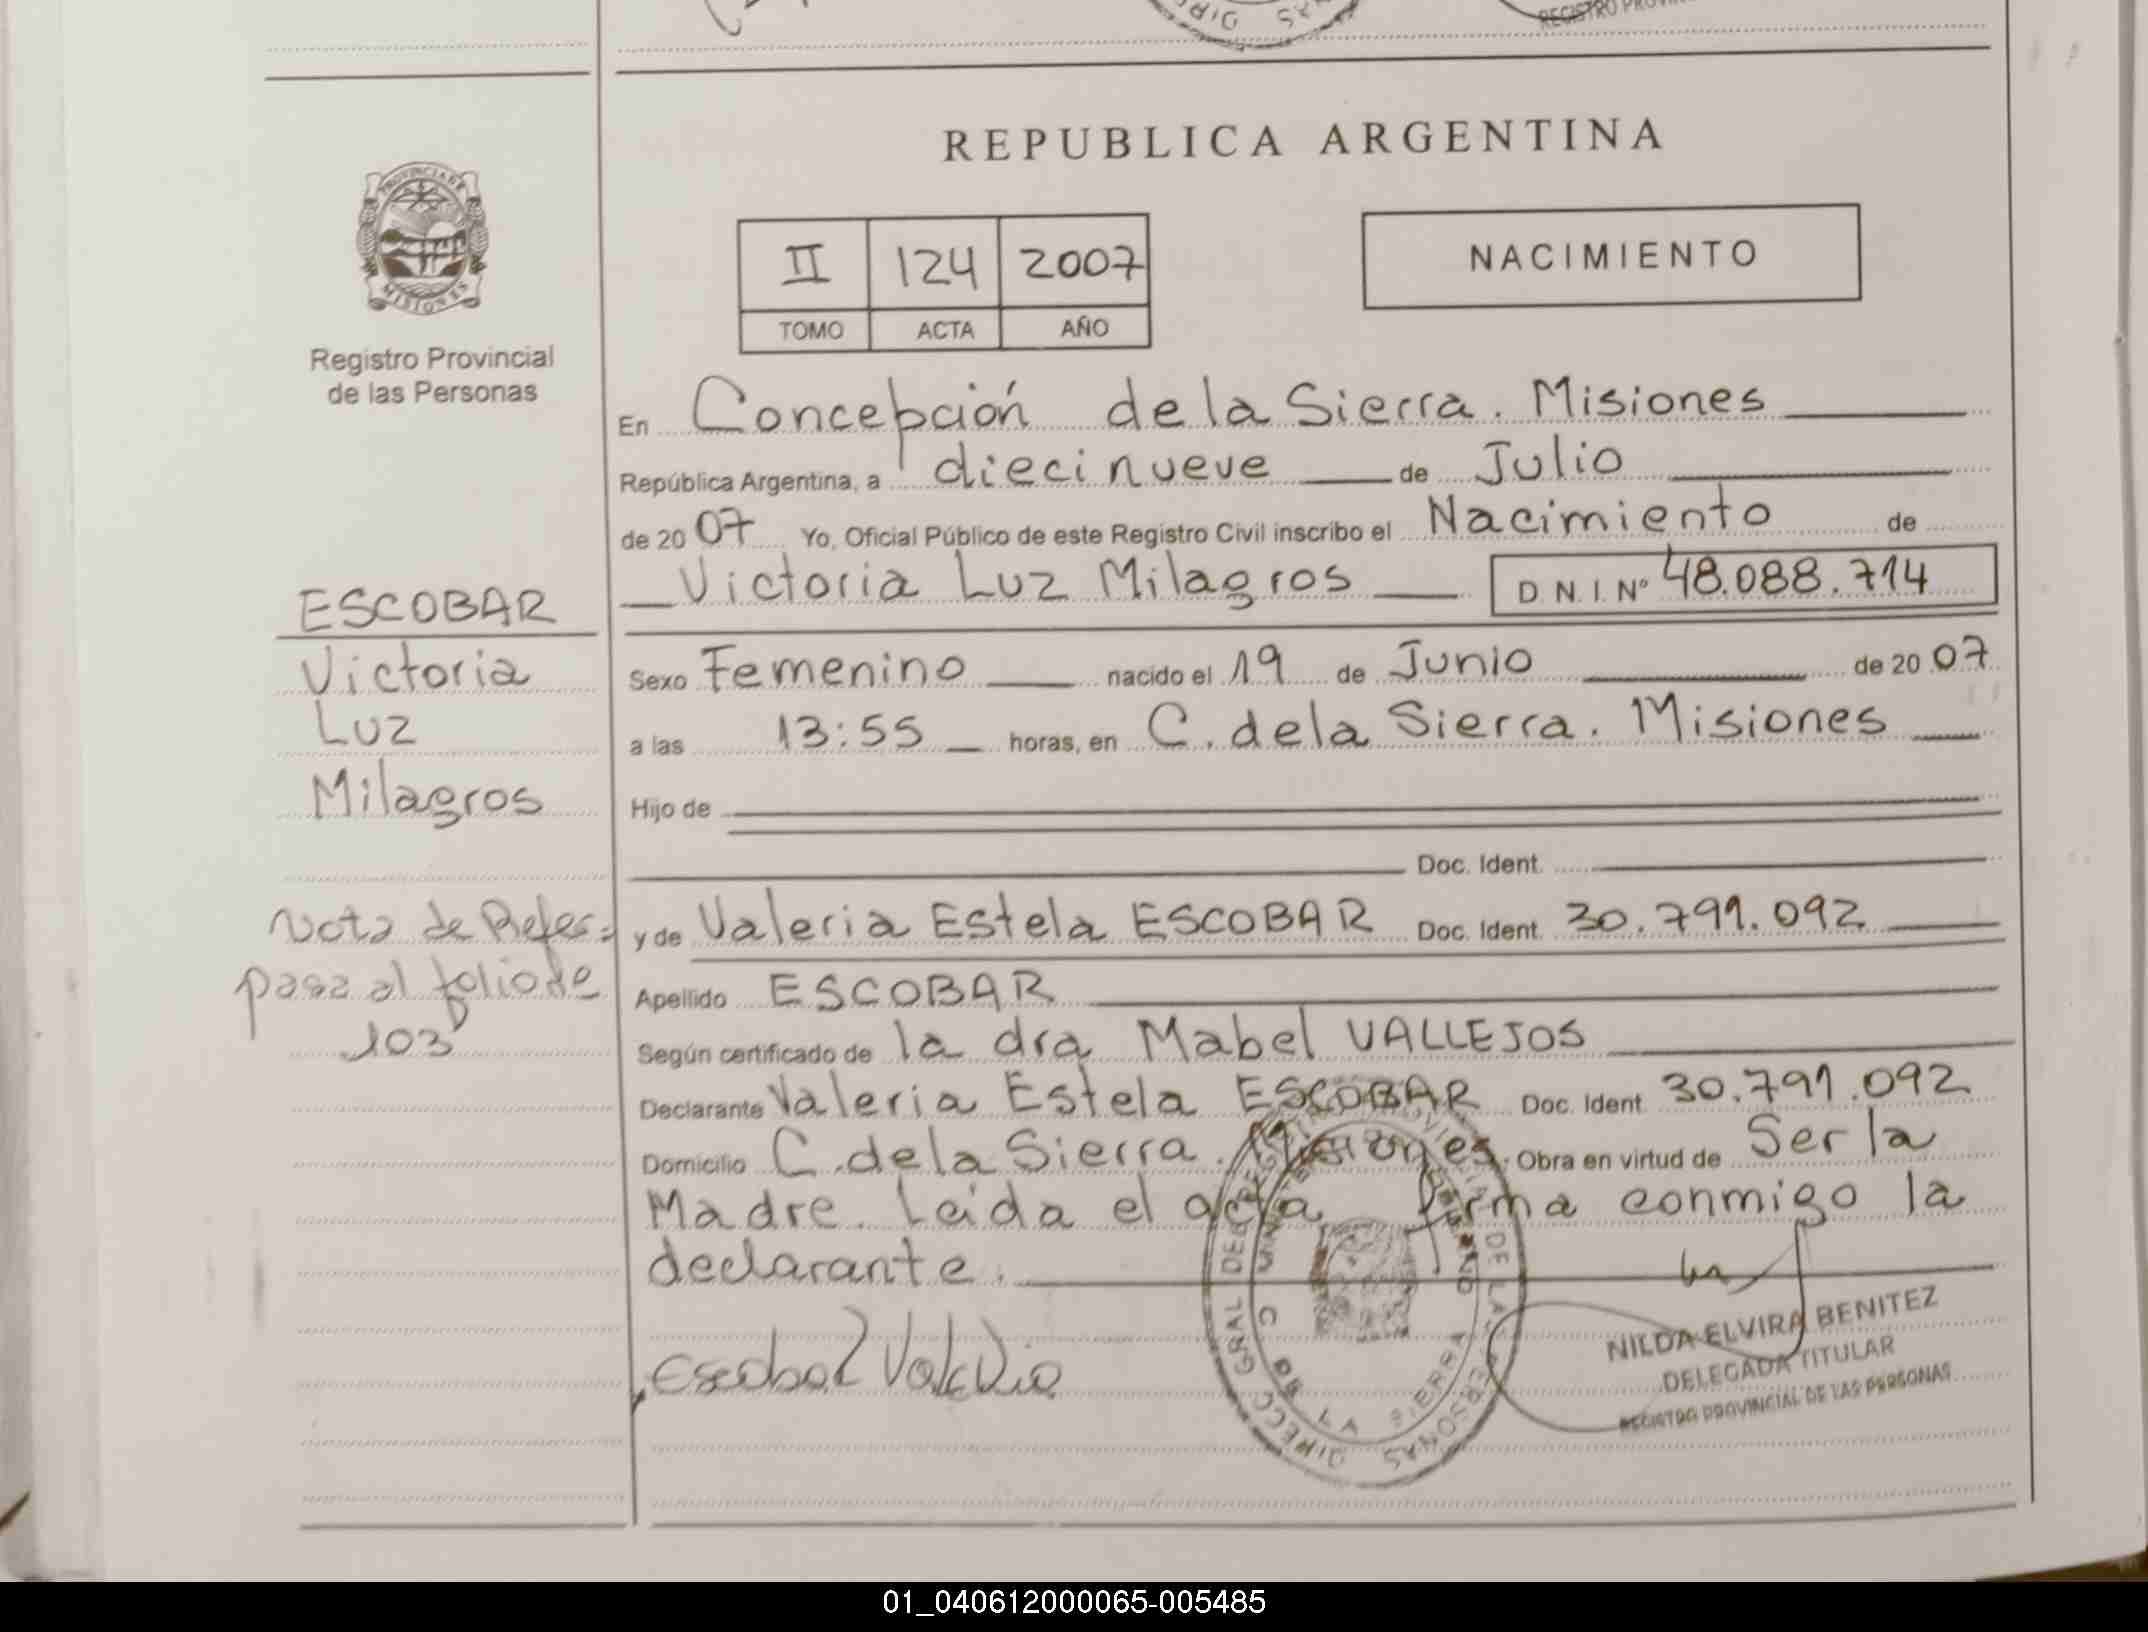 REGISTRO
REPUBLICA ARGENTINA
PROVINCIA DE
MISIONES
Registro Provincial
de las Personas
II 124 2007
TOMO ACTA AÑO
NACIMIENTO
En Concepción de la Sierra. Misiones
República Argentina, a diecinueve de Julio
de 2007 Yo, Oficial Público de este Registro Civil inscribo el Nacimiento de
Victoria Luz Milagros D.N.I. Nº 48.088.714
ESCOBAR
Victoria
Luz
Milagros
Sexo Femenino nacido el 19 de Junio de 2007
a las 13:55 horas, en C. de la Sierra. Misiones
Hijo de
Doc. Ident.
y de Valeria Estela ESCOBAR Doc. Ident. 30.791.092
Nota de Refer=
pasa al folio de
103
Apellido ESCOBAR
Según certificado de la dra Mabel VALLEJOS
Declarante Valeria Estela ESCOBAR Doc. Ident. 30.791.092
Domicilio C. de la Sierra. Misiones. Obra en virtud de Ser la
Madre. Leida el acta firma conmigo la
declarante.
Escobar Valeria
DIRECC GRAL DE REGISTRO PROVINCIAL DE LAS PERSONAS
DE LA SIERRA
NILDA ELVIRA BENITEZ
DELEGADA TITULAR
REGISTRO PROVINCIAL DE LAS PERSONAS
01_040612000065-005485